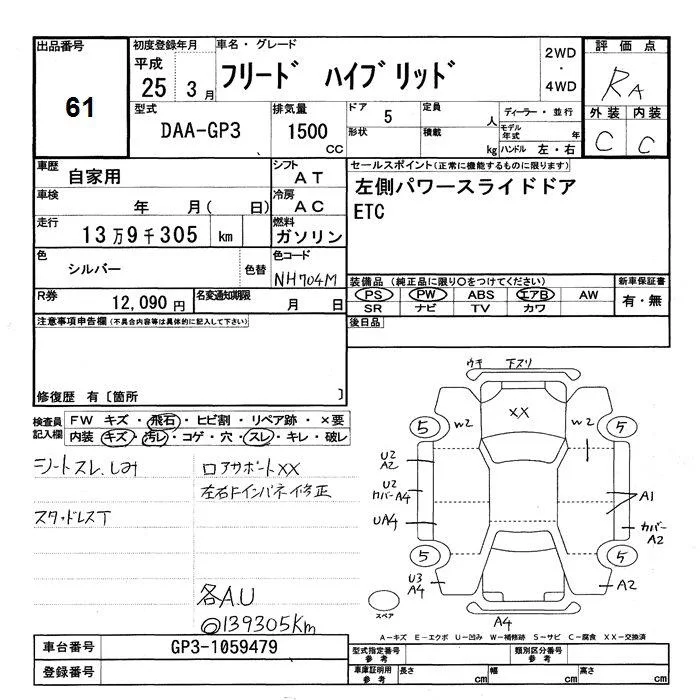 出品番号
61
初度登録年月
平成
25 3月
車名・グレード
フリード ハイブリッド
2WD
・
4WD
評価点
RA
外装 内装
C C
型式
DAA-GP3
排気量
1500
CC
ドア 5
形状
定員 人
積載 kg
ディーラー・並行
モデル年式 年
ハンドル 左・右
車歴
自家用
シフト
AT
車検
年 月( 日)
冷房
AC
走行
13万9千305 km
燃料
ガソリン
色
シルバー
色替
色コード
NH704M
R券
12,090円
名変通知期限
月 日
セールスポイント(正常に機能するものに限ります)
左側パワースライドドア
ETC
装備品(純正品に限り○をつけてください)
PS PW ABS エアB AW
SR ナビ TV カワ
新車保証書
有・無
後日品
注意事項申告欄(不具合内容等は具体的に記入して下さい)
修復歴 有〔箇所 〕
検査員記入欄
FW キズ・飛石・ヒビ割・リペア跡・×要
内装 キズ・汚レ・コゲ・穴・スレ・キレ・破レ
シートスレ.しみ
スタッドレスT
ロアサポートXX
左右Fインパネ修正
各A.U
◎139305Km
ウキ 下スリ
XX
5 W2 W2 5
U2
A2
U2
カバーA4
UA4
A1
カバー
A2
5 5
U3
A4
A2
A4
スペア
A-キズ E-エクボ U-凹み W-補修跡 S-サビ C-腐食 XX-交換済
車台番号
GP3-1059479
登録番号
型式指定番号
参考
類別区分番号
参考
車庫証明用
参考
長さ cm
幅 cm
高さ cm